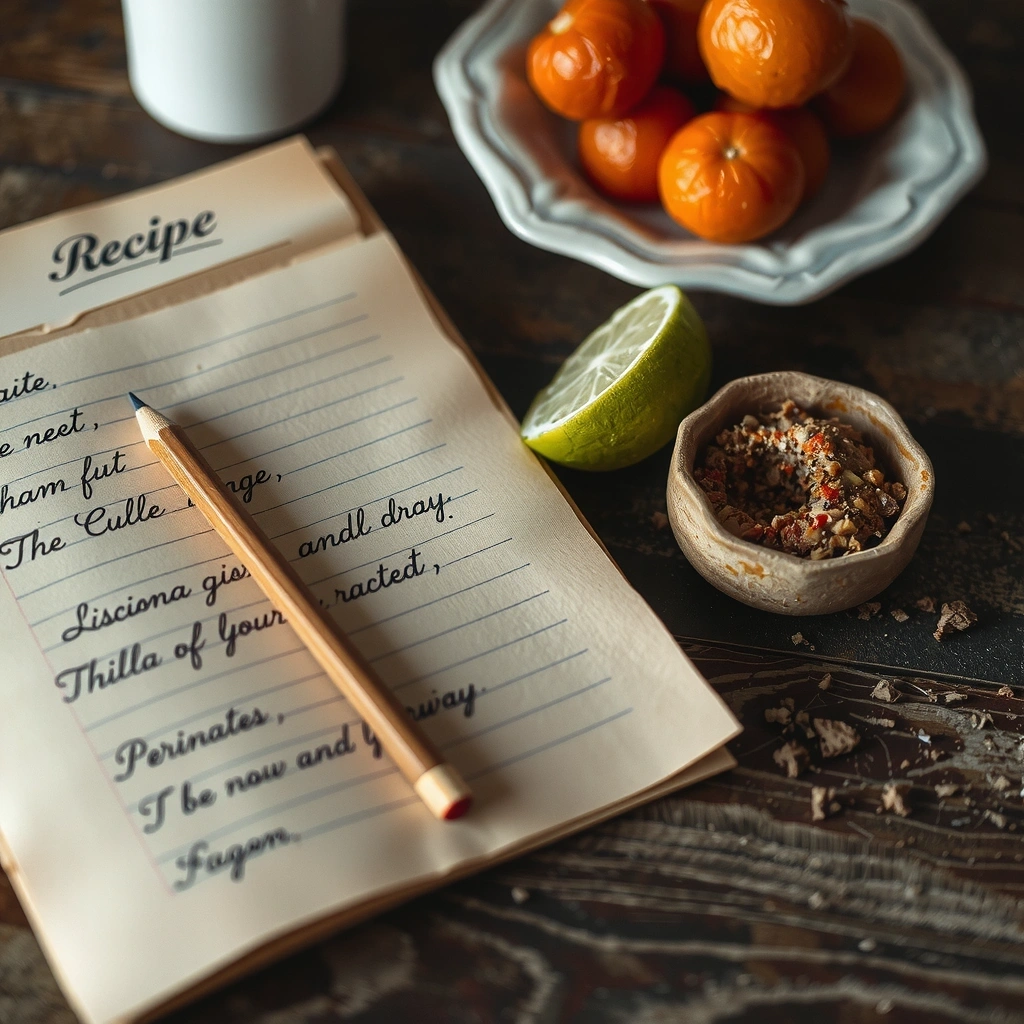 Recipe
aite.
e neet,
ham fut
The Culle nge,
andl dray.
Lisciona gis
Thilla of Your racted,
Perinates,
T be now and way.
Fagen.